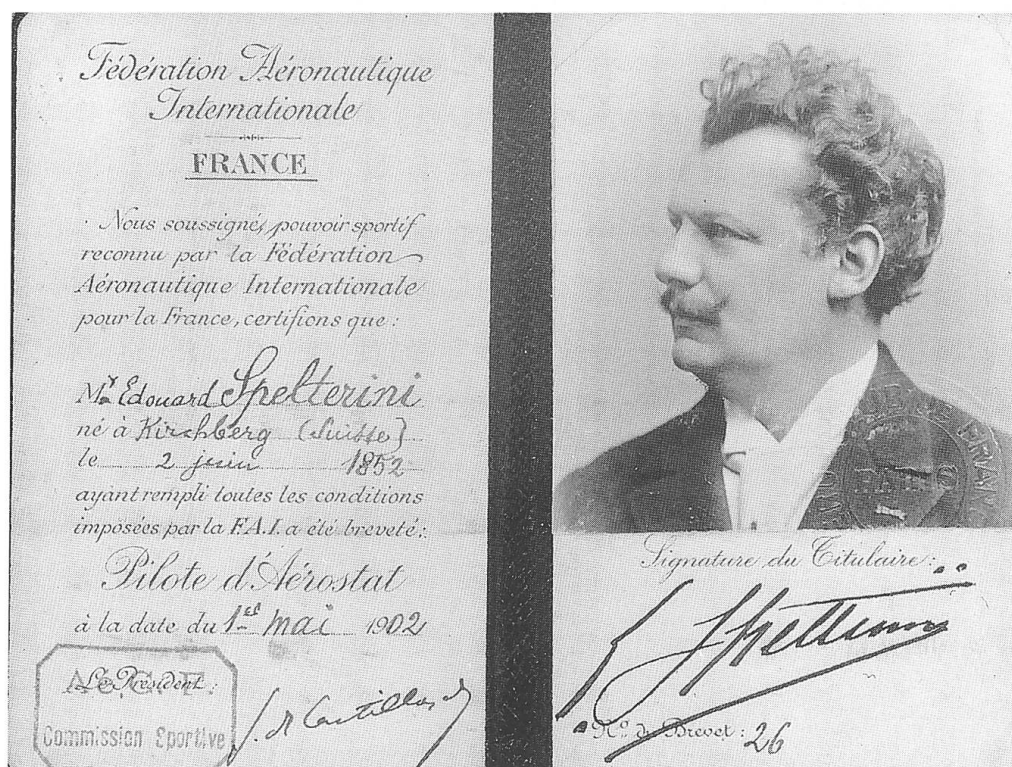 Fédération Aéronautique
Internationale
FRANCE
Nous soussignés, pouvoir sportif
reconnu par la Fédération
Aéronautique Internationale
pour la France, certifions que :
Mr Edouard Spelterini
né à Kirchberg (Suisse)
le 2 juin 1852
ayant rempli toutes les conditions
imposées par la F.A.I. a été breveté :
Pilote d'Aérostat
à la date du 1er mai 1902
Le Président :
Aé.C.F.
Commission Sportive
PARIS
Signature du Titulaire :
E Spelterini
No du Brevet : 26